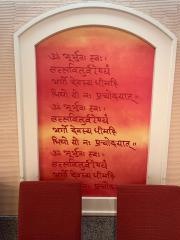 ॐ भूर्भुवः स्वः।
तत्सवितुर्वरेण्यं
भर्गो देवस्य धीमहि
धियो यो नः प्रचोदयात्॥
ॐ भूर्भुवः स्वः।
तत्सवितुर्वरेण्यं
भर्गो देवस्य धीमहि
धियो यो नः प्रचोदयात्॥
ॐ भूर्भुवः स्वः।
तत्सवितुर्वरेण्यं
भर्गो देवस्य धीमहि
प्रचोदयात्॥